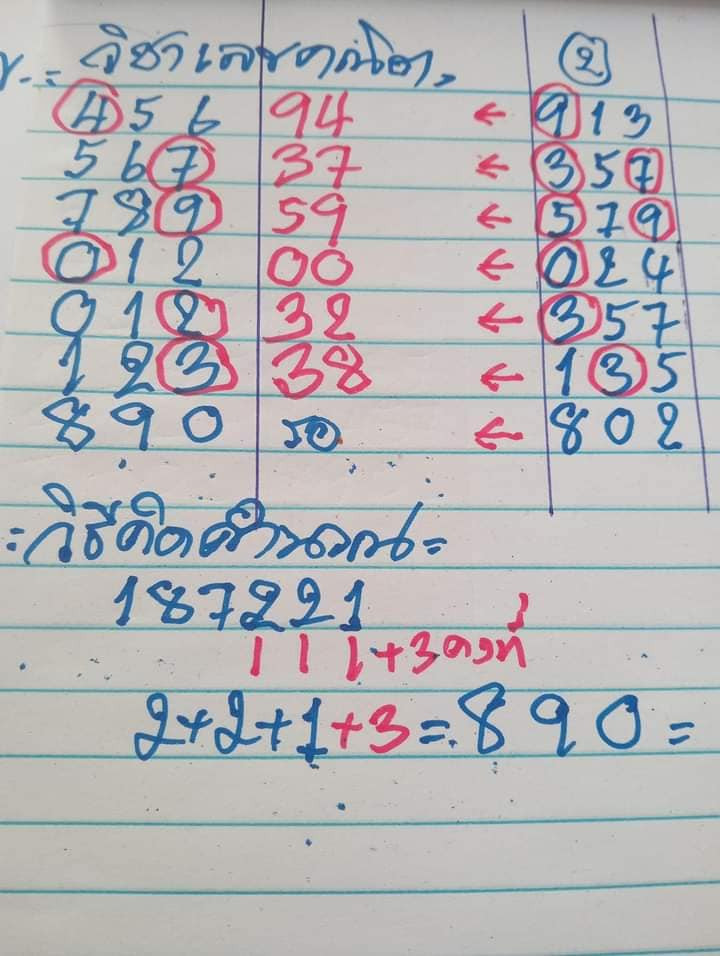 วิชาเลขคณิต ②
456 94 ← 913
567 37 ← 357
789 59 ← 579
012 00 ← 024
012 32 ← 357
123 38 ← 135
890 รอ ← 802
=วิธีคิดคำนวณ=
187221
1 1 1+3คงที่
2+2+1+3=8 9 0=